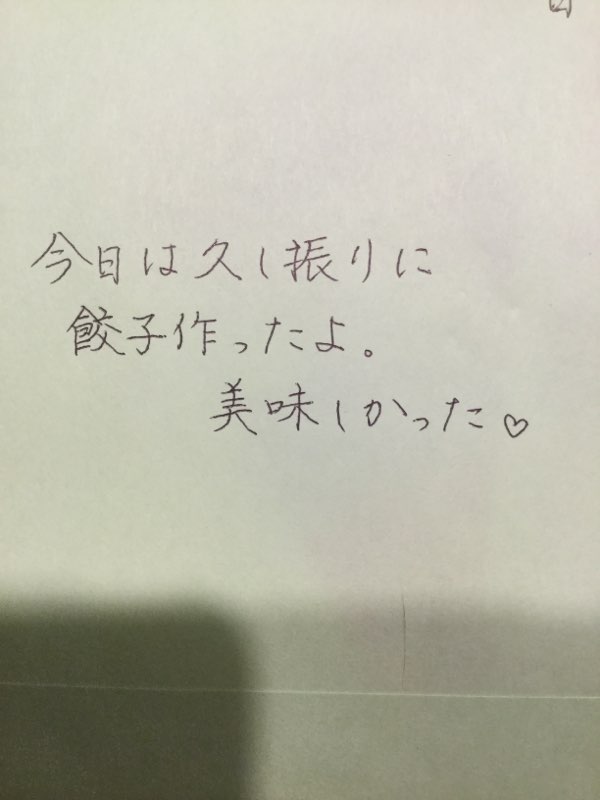 今日は久し振りに
餃子作ったよ。
美味しかった♡